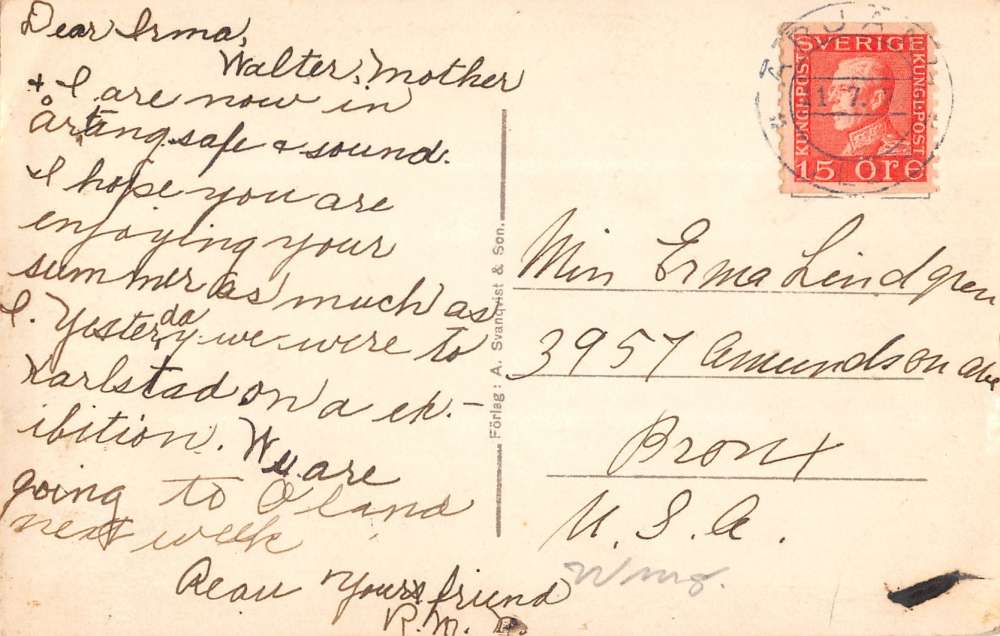 Dear Irma,
Walter, Mother
+ I are now in
årtang safe & sound.
I hope you are
enjoying your
summer as much as
I. Yesterday we were to
Karlstad on a ex-
ibition. We are
going to Öland
next week
Your friend
R. M. P.
Förlag: A. Svanqvist & Son.
SVERIGE
KUNGL·POST
KUNGL·POST
15 ÖRE
1 7.
Miss Erma Lindgren
3957 Amundson ave
Bronx
U. S. A.